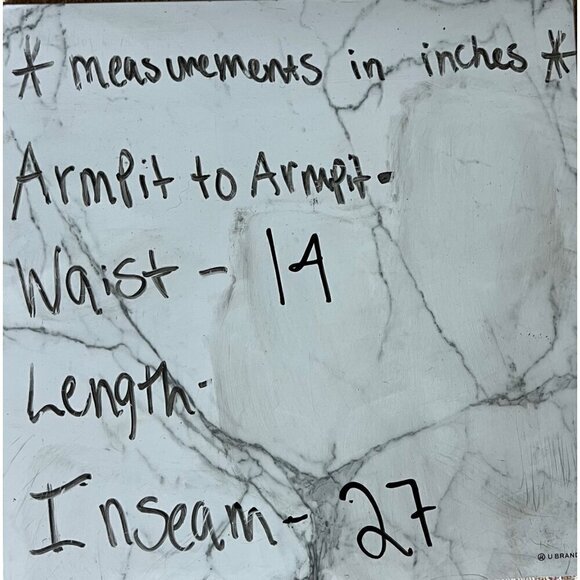 * measurements in inches *
Armpit to Armpit-
Waist - 14
Length-
Inseam - 27
U BRAND